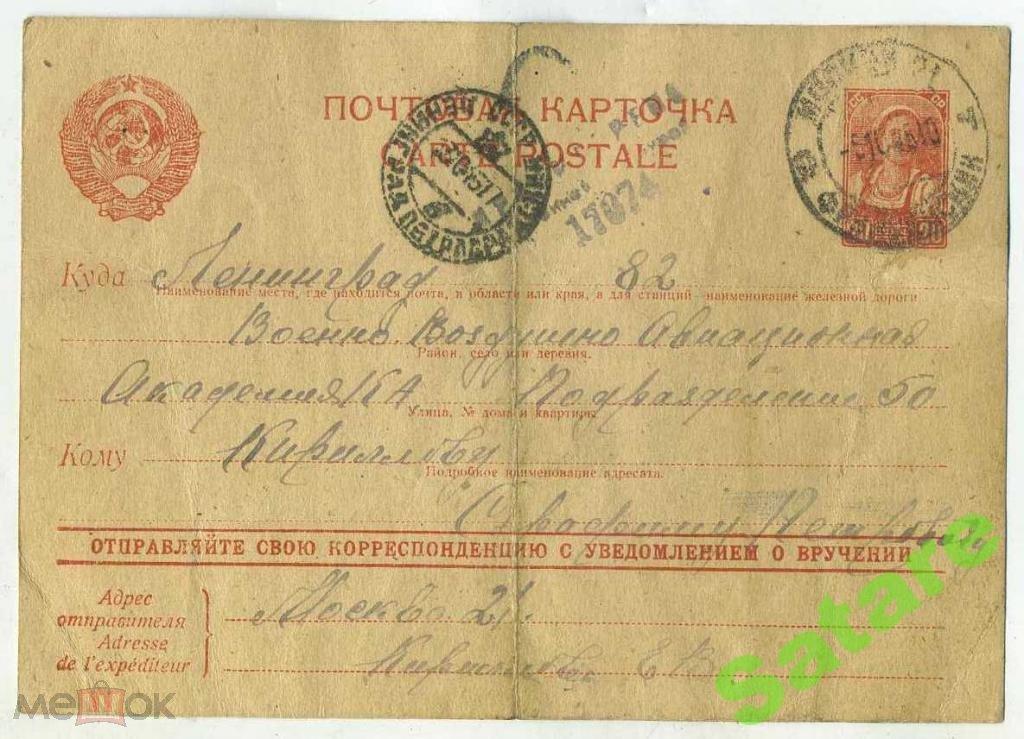 ПОЧТОВАЯ КАРТОЧКА
CARTE POSTALE
17074
20
Куда Ленинград 82
Наименование места, где находится почта, и области или края, а для станций наименование железной дороги
Военно. Воздушно Авиационная
Район, село или деревня.
Академия КА Подразделение 50
Улица, № дома и квартиры
Кому Кириллову
Подробное наименование адресата.
Серафиму Петровичу
ОТПРАВЛЯЙТЕ СВОЮ КОРРЕСПОНДЕНЦИЮ С УВЕДОМЛЕНИЕМ О ВРУЧЕНИИ
Адрес отправителя
Adresse de l'expéditeur
Москва 21.
Кириллова Е В
Satare
мешок